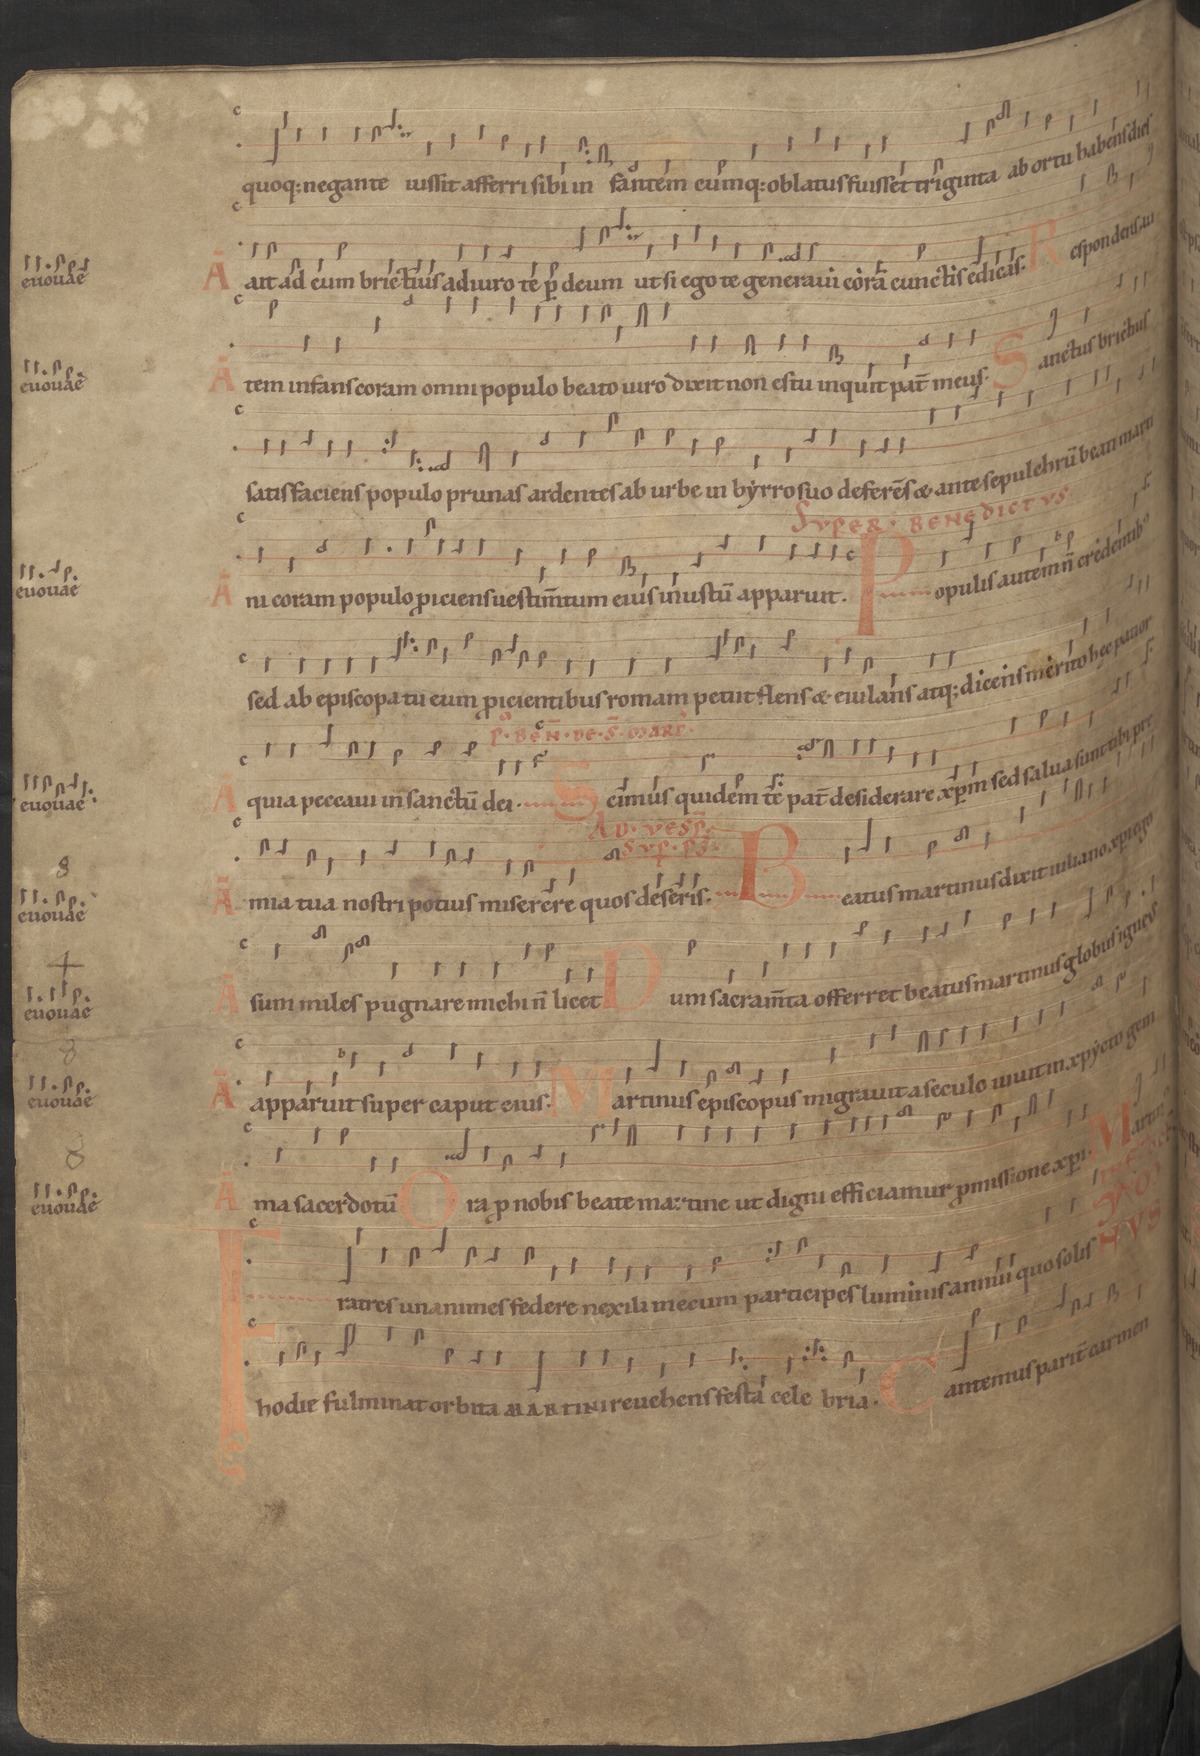 quoq; negante iussit afferri sibi in fantem cumq; oblatus fuisset triginta ab ortu habens dies
euouae A ait ad eum brictius adiuro te p̄ deum ut si ego te generaui corā cunctis edicas. Respondens au
euouae A tem infans coram omni populo beato uiro dixit non es tu inquit pat̄ meus. Sanctus brictius
satisfaciens populo prunas ardentes ab urbe in byrro suo deferēs & ante sepulchrū beati marti
SUPER BENEDICTUS
euouae A ni coram populo ꝓiciens uestim̄tum eius inustū apparuit. Populis autem n̄ credentib;
sed ab episcopatu eum ꝓicientibus romam petiit flens & eiulans atq; dicens merito hec patior
euouae A quia peccaui in sanctū dei. Scimus quidem te pat̄ desiderare xp̄m sed salua sunt tibi pre
AD VESP̄.
SUP. PS.
8
euouae A mia tua nostri potius miserere quos deseris. Beatus martinus dixit iuliano xp̄i ego
euouae A sum miles pugnare michi n̄ licet Dum sacram̄ta offerret beatus martinus globus igneus
8
euouae A apparuit super caput eius. Martinus episcopus migrauit a seculo uiuit in xp̄o gem
8
euouae A ma sacerdotū Ora ꝓ nobis beate martine ut digni efficiamur ꝓmissione xp̄i. Martin
Fratres unanimes federe nexili mecum participes luminis annui quo solis
hodie fulminat orbita MARTINI reuehens festa cele bria. Cantemus parit̄ carmen